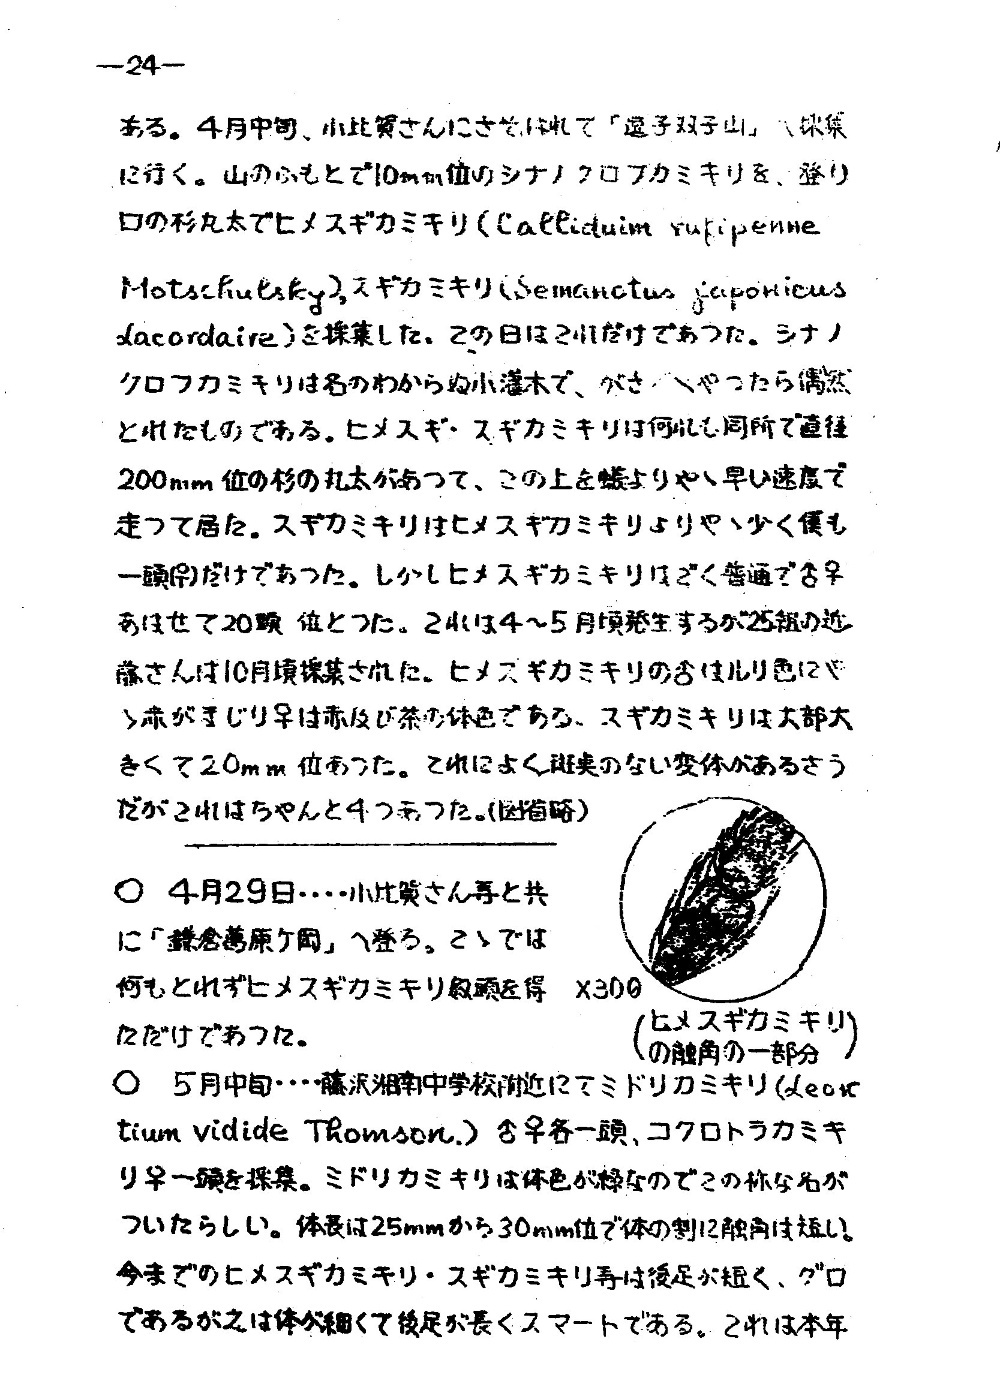 —24—
ある。4月中旬、小比賀さんにさそはれて「逗子双子山」へ採集
に行く。山のふもとで10mm位のシナノクロフカミキリを、登り
口の杉丸太でヒメスギカミキリ(Callidiuim rufipenne
Motschulsky),スギカミキリ(Semanotus japonicus
Lacordaire)を採集した。この日はこれだけであつた。シナノ
クロフカミキリは名のわからぬ小灌木で、がさ/\やつたら偶然
とれたものである。ヒメスギ・スギカミキリは何れも同所で直径
200mm位の杉の丸太があつて、この上を蟻よりやゝ早い速度で
走つて居た。スギカミキリはヒメスギカミキリよりやゝ少く僕も
一頭(♀)だけであつた。しかしヒメスギカミキリはごく普通で♂♀
あはせて20頭位とつた。これは4〜5月頃発生するが25組の近
藤さんは10月頃採集された。ヒメスギカミキリの♂はルリ色にや
ゝ赤がまじり♀は赤及び茶の体色である、スギカミキリは大部大
きくて20mm位あつた。これによく斑点のない変体があるさう
だがこれはちやんと4つあつた。(図省略)
○ 4月29日‥‥小比賀さん等と共
に「鎌倉葛原ケ岡」へ登る。こゝでは
何もとれずヒメスギカミキリ数頭を得
ただけであつた。
×300
(ヒメスギカミキリ
の触角の一部分)
○ 5月中旬‥‥藤沢湘南中学校附近にてミドリカミキリ(Leon
tium vidide Thomson.)♂♀各一頭、コクロトラカミキ
リ♀一頭を採集。ミドリカミキリは体色が緑なのでこの称な名が
ついたらしい。体長は25mmから30mm位で体の割に触角は短い。
今までのヒメスギカミキリ・スギカミキリ等は後足が短く、グロ
であるが之は体が細くて後足が長くスマートである。これは本年